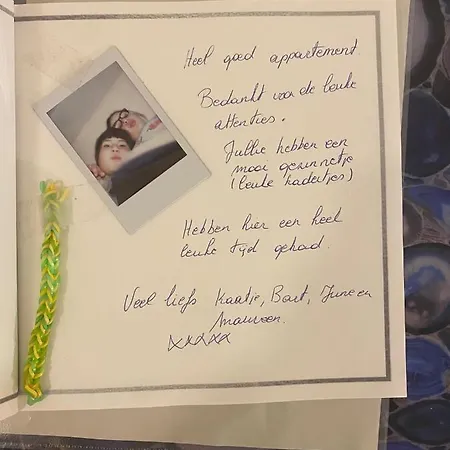 Heel goed appartement.
Bedankt voor de leuke
attenties.
Jullie hebben een
mooi gezinnetje
(leuke kadeitjes)
Hebben hier een heel
leuke tijd gehad.
Veel liefs Kaatje, Bart, June en
Maureen.
xxxxx